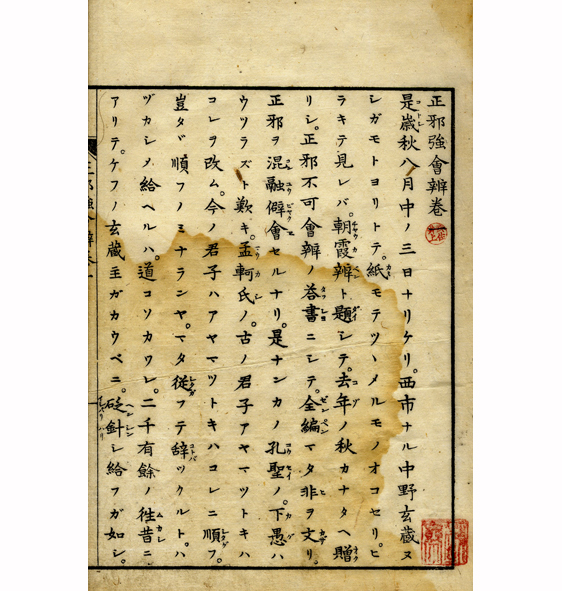 正邪強會辨卷一
是歳秋八月中ノ三日ナリケリ。西市ナル中野玄蔵ヌ
シガモトヨリトテ。紙モテツヽメルモノオコセリ。ヒ
ラキテ見レバ。朝霞辨ト題シテ。去年ノ秋カナタヘ贈
リシ。正邪不可會辨ノ荅書ニシテ。全編マタ非ヲ文リ。
正邪ヲ混融僻會セルナリ。是ナンカノ孔聖ノ。下愚ハ
ウツラズト歎キ。孟軻氏ノ。古ノ君子アヤマツトキハ
コレヲ改ム。今ノ君子ハアヤマツトキハコレニ順フ。
豈タヾ順フノミナランヤ。マタ従フテ辞ツクルト。ハ
ヅカシメ給ヘルハ。道コソカワレ。二千有餘ノ徃昔ニ
アリテ。ケフノ玄蔵主ガカウベニ。砭針シ給フガ如シ。